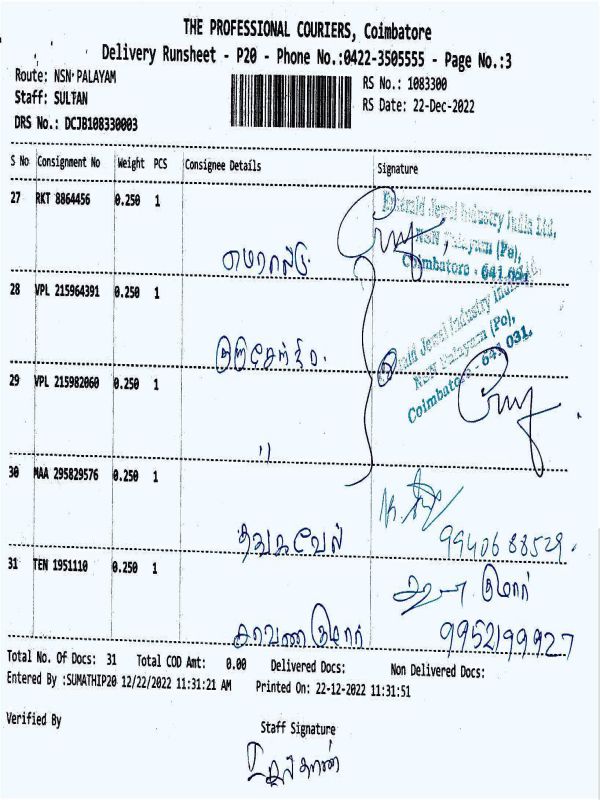 THE PROFESSIONAL COURIERS, Coimbatore
Delivery Runsheet - P20 - Phone No.:0422-3505555 - Page No.:3
Route: NSN PALAYAM
RS No.: 1083300
Staff: SULTAN
RS Date: 22-Dec-2022
DRS No.: DCJB108330003
S No Consignment No Weight PCS Consignee Details Signature
27 RKT 8864456 0.250 1
Emerald Jewel Industry India Ltd.
NSN Palayam (Po),
Coimbatore - 641 031
எமரால்டு
28 VPL 215964391 0.250 1
Emerald Jewel Industry India Ltd,
NSN Palayam (Po),
Coimbatore - 641 031.
29 VPL 215982060 0.250 1
"
30 MAA 295829576 0.250 1
தங்கவேல் 9940688529.
31 TEN 1951110 0.250 1
சரவணகுமார் 9952199927
Total No. Of Docs: 31 Total COD Amt: 0.00 Delivered Docs: Non Delivered Docs:
Entered By :SUMATHIP20 12/22/2022 11:31:21 AM Printed On: 22-12-2022 11:31:51
Verified By
Staff Signature